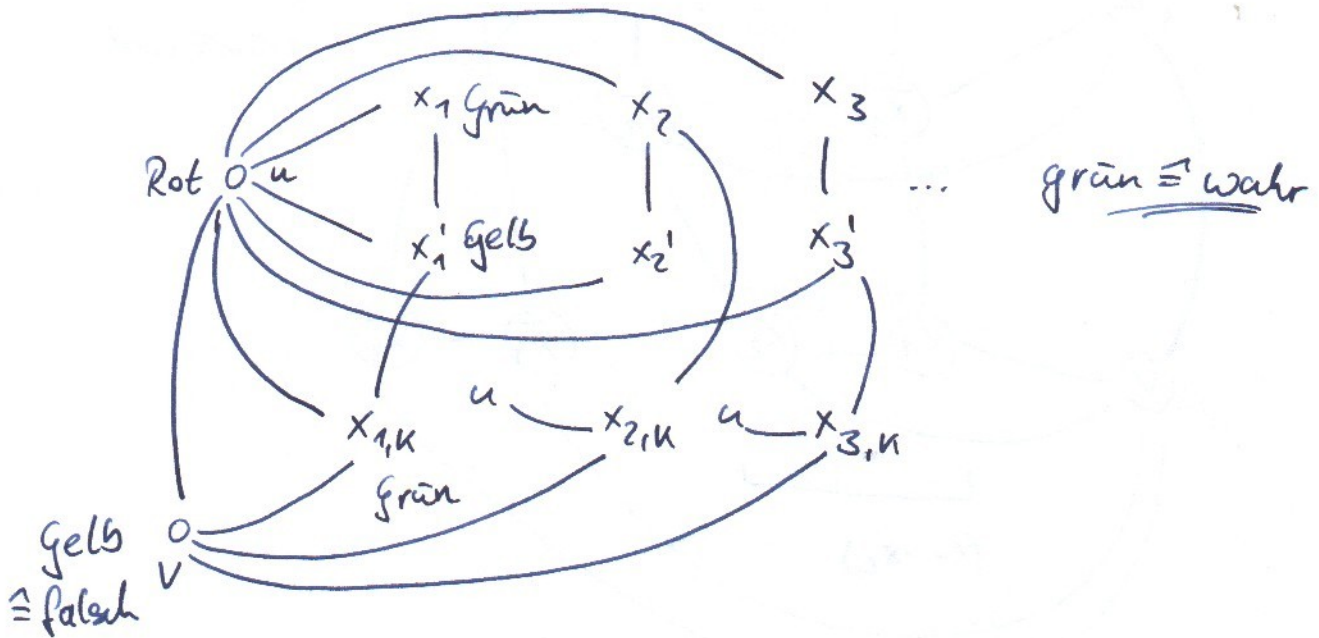 x₁ Grün x₂ x₃
Rot u ... grün ≙ wahr
x₁' Gelb x₂' x₃'
u u
x₁,ₖ x₂,ₖ x₃,ₖ
Grün
Gelb
v
≙ falsch